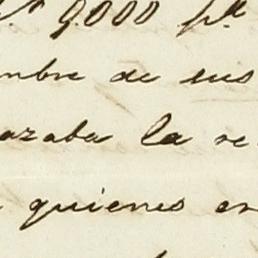 9.000 ps
mbre de sus
azaba la re
quienes en